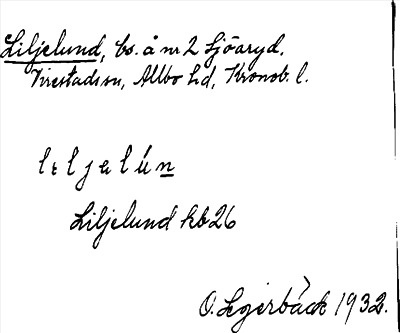 Liljelund, bs. å nr 2 Sjöaryd.
Virestads sn, Allbo hd, Kronob. l.
lɩljəlún
Liljelund kb 26
O. Legerbäck 1932.